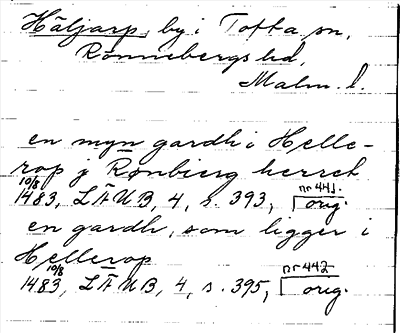 Häljarp, by i Tofta sn,
Rönnebergs hd,
Malm. l.
en myn gardh i Helle-
rop j Rønbierg herret
10/8 1483, LÄUB, 4, s. 393, nr 441. orig.
en gardh, som ligger i
Hellerop
10/8 1483, LÄUB, 4, s. 395, nr 442. orig.